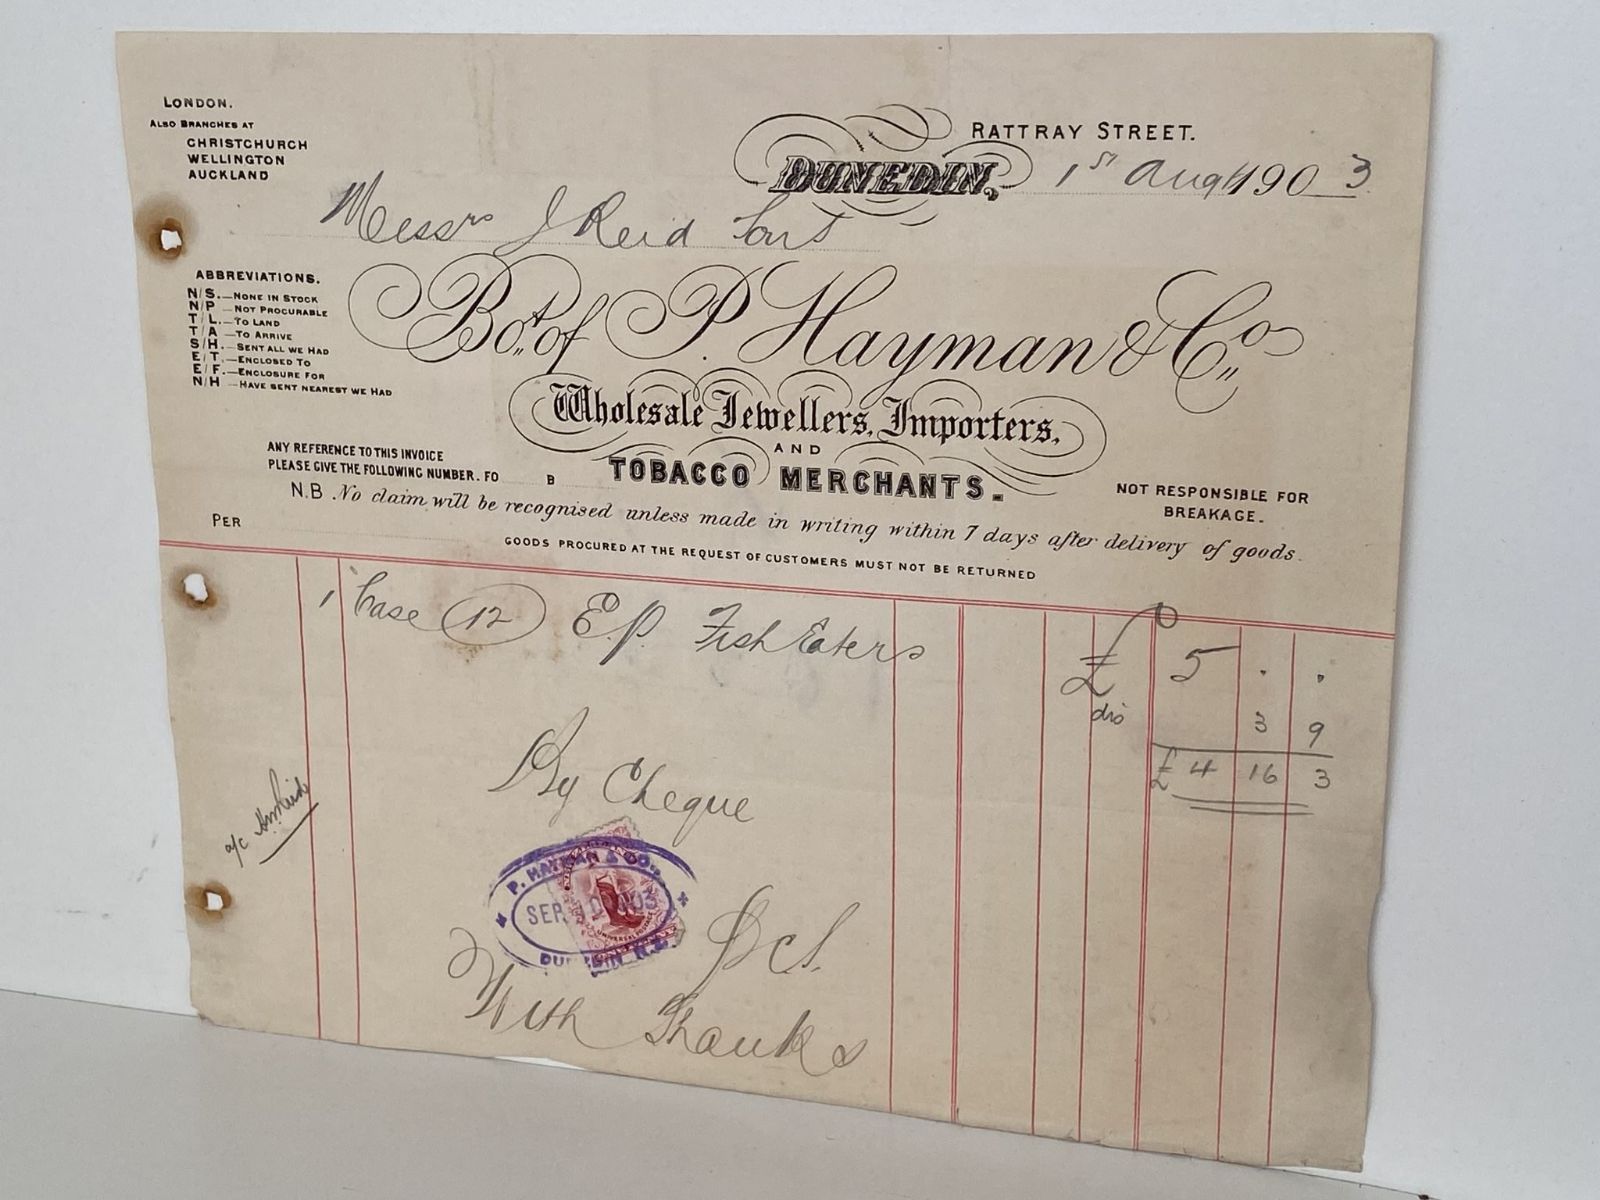 LONDON.
ALSO BRANCHES AT
CHRISTCHURCH
WELLINGTON
AUCKLAND
RATTRAY STREET.
DUNEDIN, 1st Aug 1903
Messrs J Reid Sons
ABBREVIATIONS.
N/S.—NONE IN STOCK
N/P—NOT PROCURABLE
T/L.—TO LAND
T/A—TO ARRIVE
S/H.—SENT ALL WE HAD
E/T.—ENCLOSED TO
E/F.—ENCLOSURE FOR
N/H—HAVE SENT NEAREST WE HAD
Bot. of P. Hayman & Co
Wholesale Jewellers, Importers,
AND
TOBACCO MERCHANTS.
ANY REFERENCE TO THIS INVOICE
PLEASE GIVE THE FOLLOWING NUMBER. FO B
NOT RESPONSIBLE FOR
BREAKAGE.
N.B. No claim will be recognised unless made in writing within 7 days after delivery of goods.
PER
GOODS PROCURED AT THE REQUEST OF CUSTOMERS MUST NOT BE RETURNED
1 Case 12 E.P. Fish Eaters £ 5 . .
dis 3 9
£ 4 16 3
By Cheque
a/c
P. HAYMAN & CO.
SEP 1903
UNIVERSAL
DUNEDIN N.Z.
With Thanks